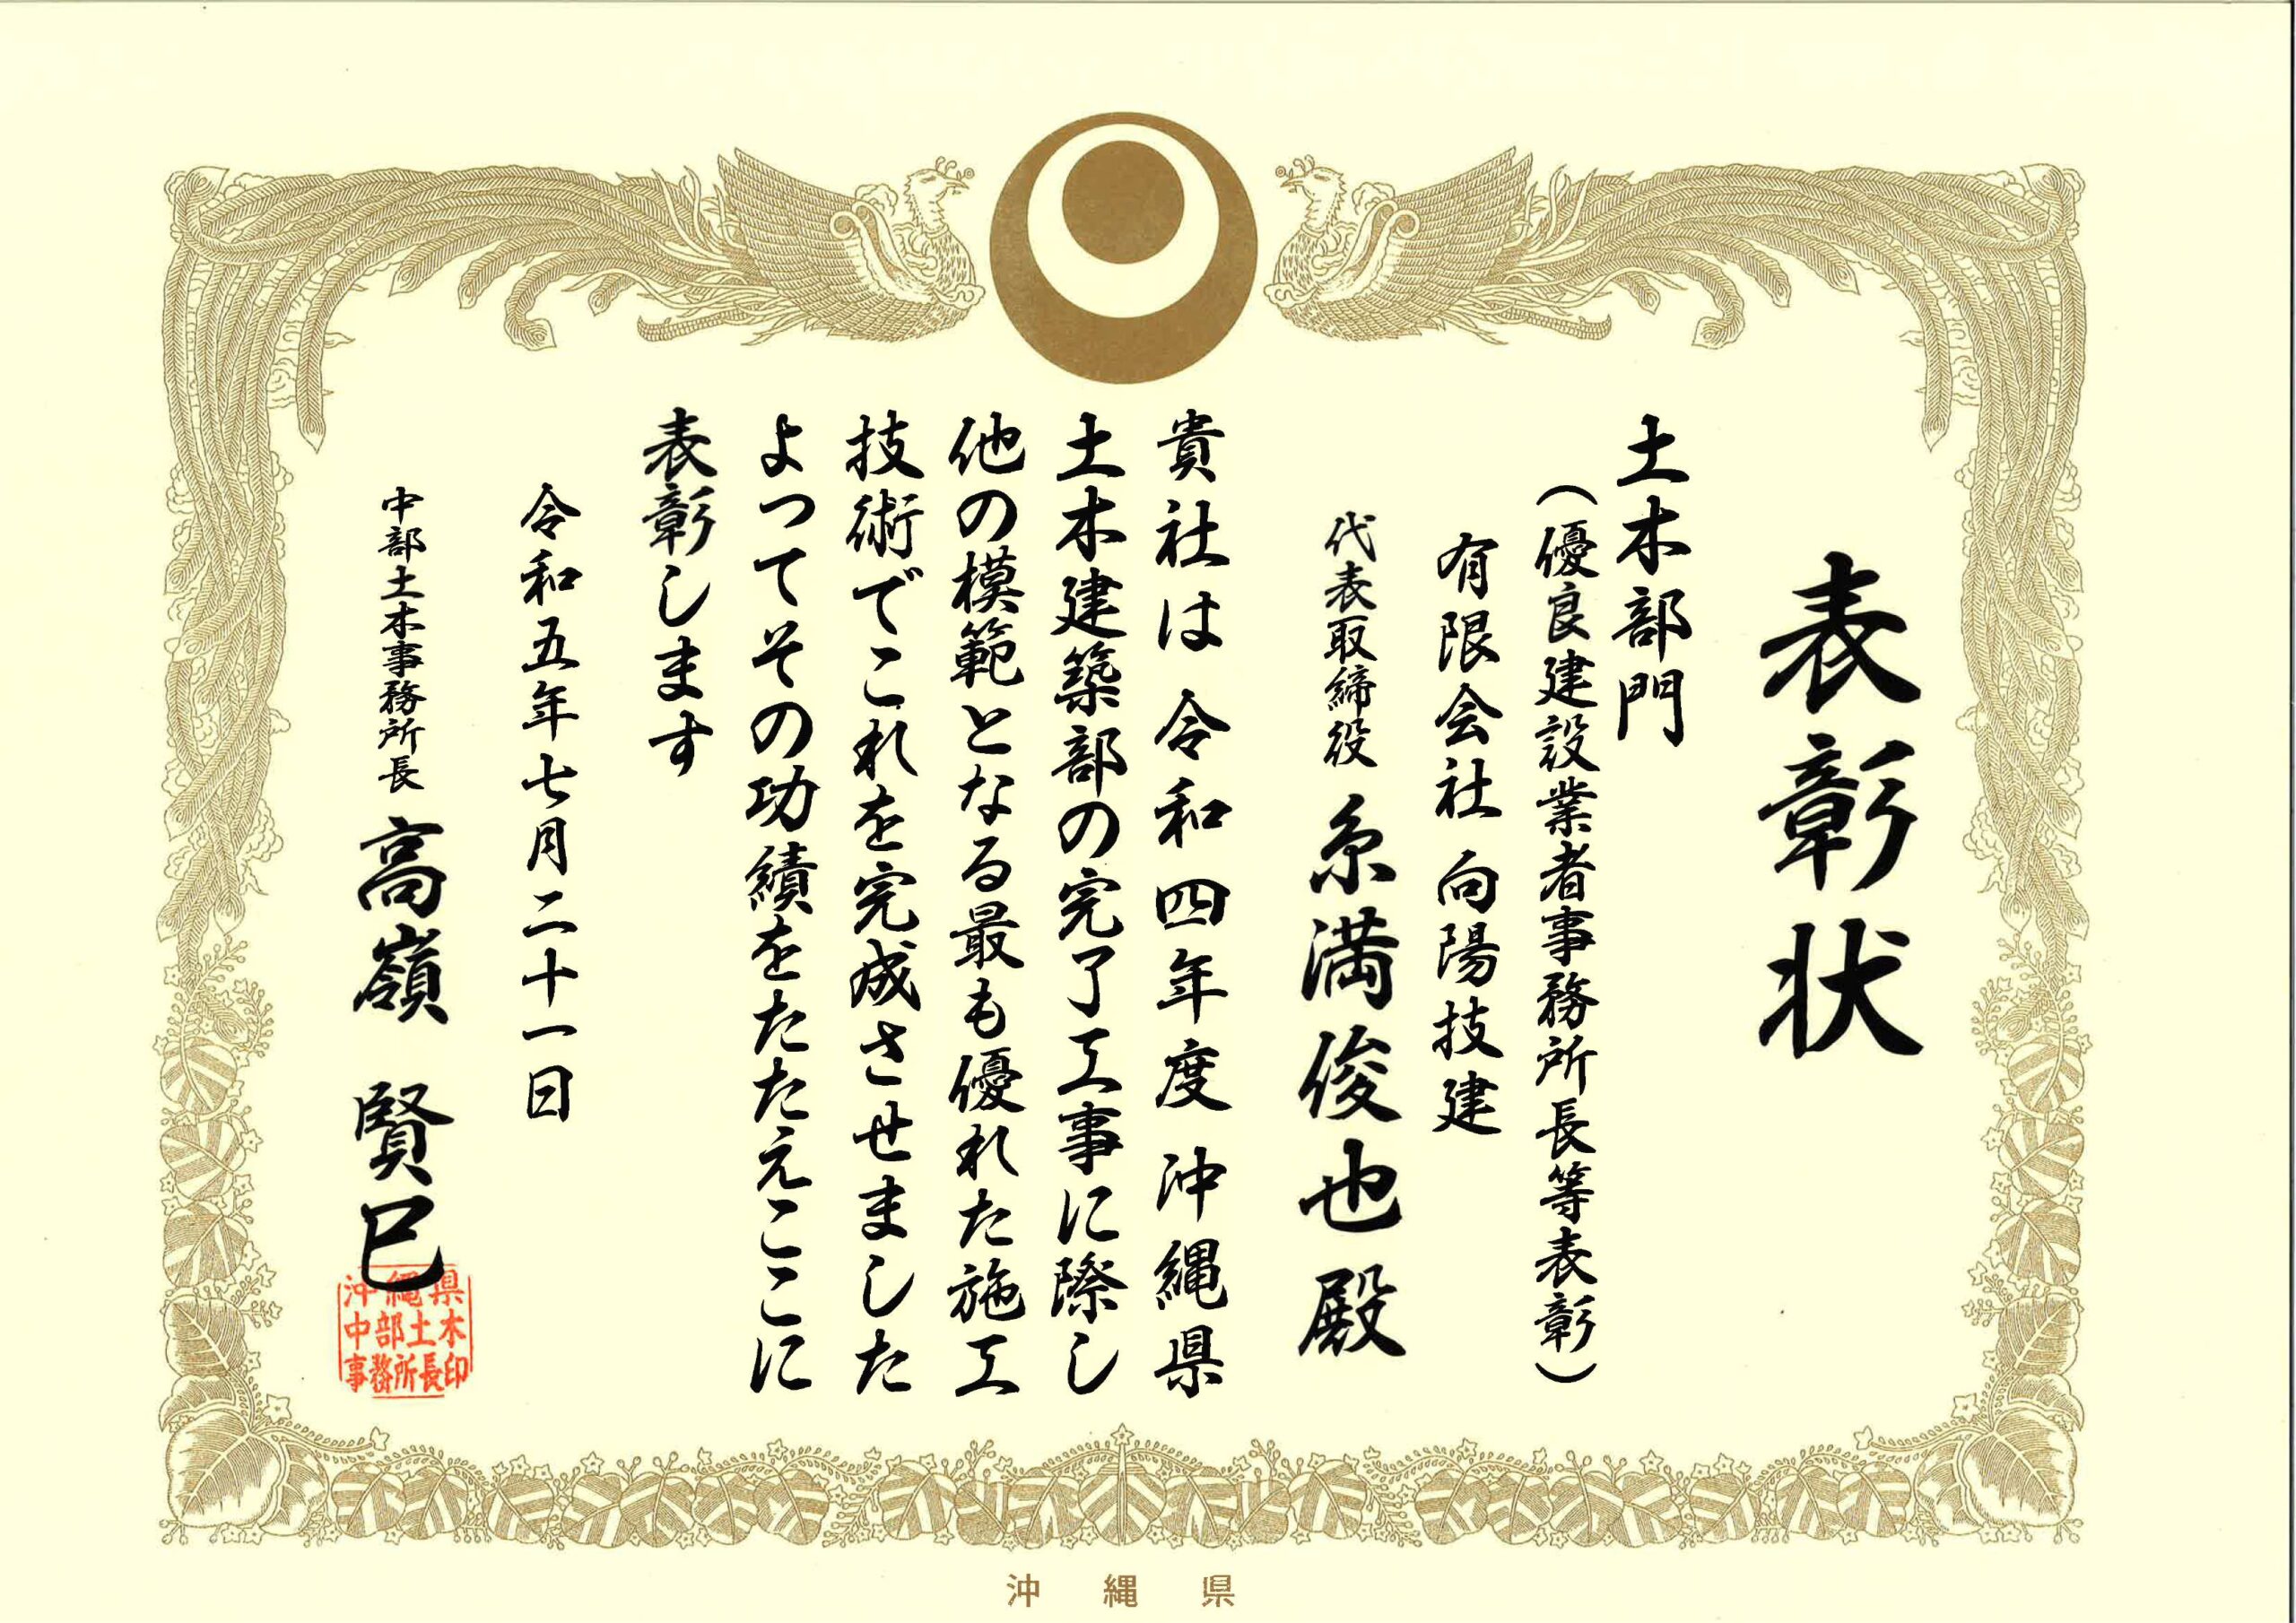 表彰状
土木部門
（優良建設業者事務所長等表彰）
有限会社 向陽技建
代表取締役 糸満俊也殿
貴社は令和四年度沖縄県
土木建築部の完了工事に際し
他の模範となる最も優れた施工
技術でこれを完成させました
よってその功績をたたえここに
表彰します
令和五年七月二十一日
中部土木事務所長 高嶺 賢巳
沖縄県
中部土木
事務所長印
沖縄県